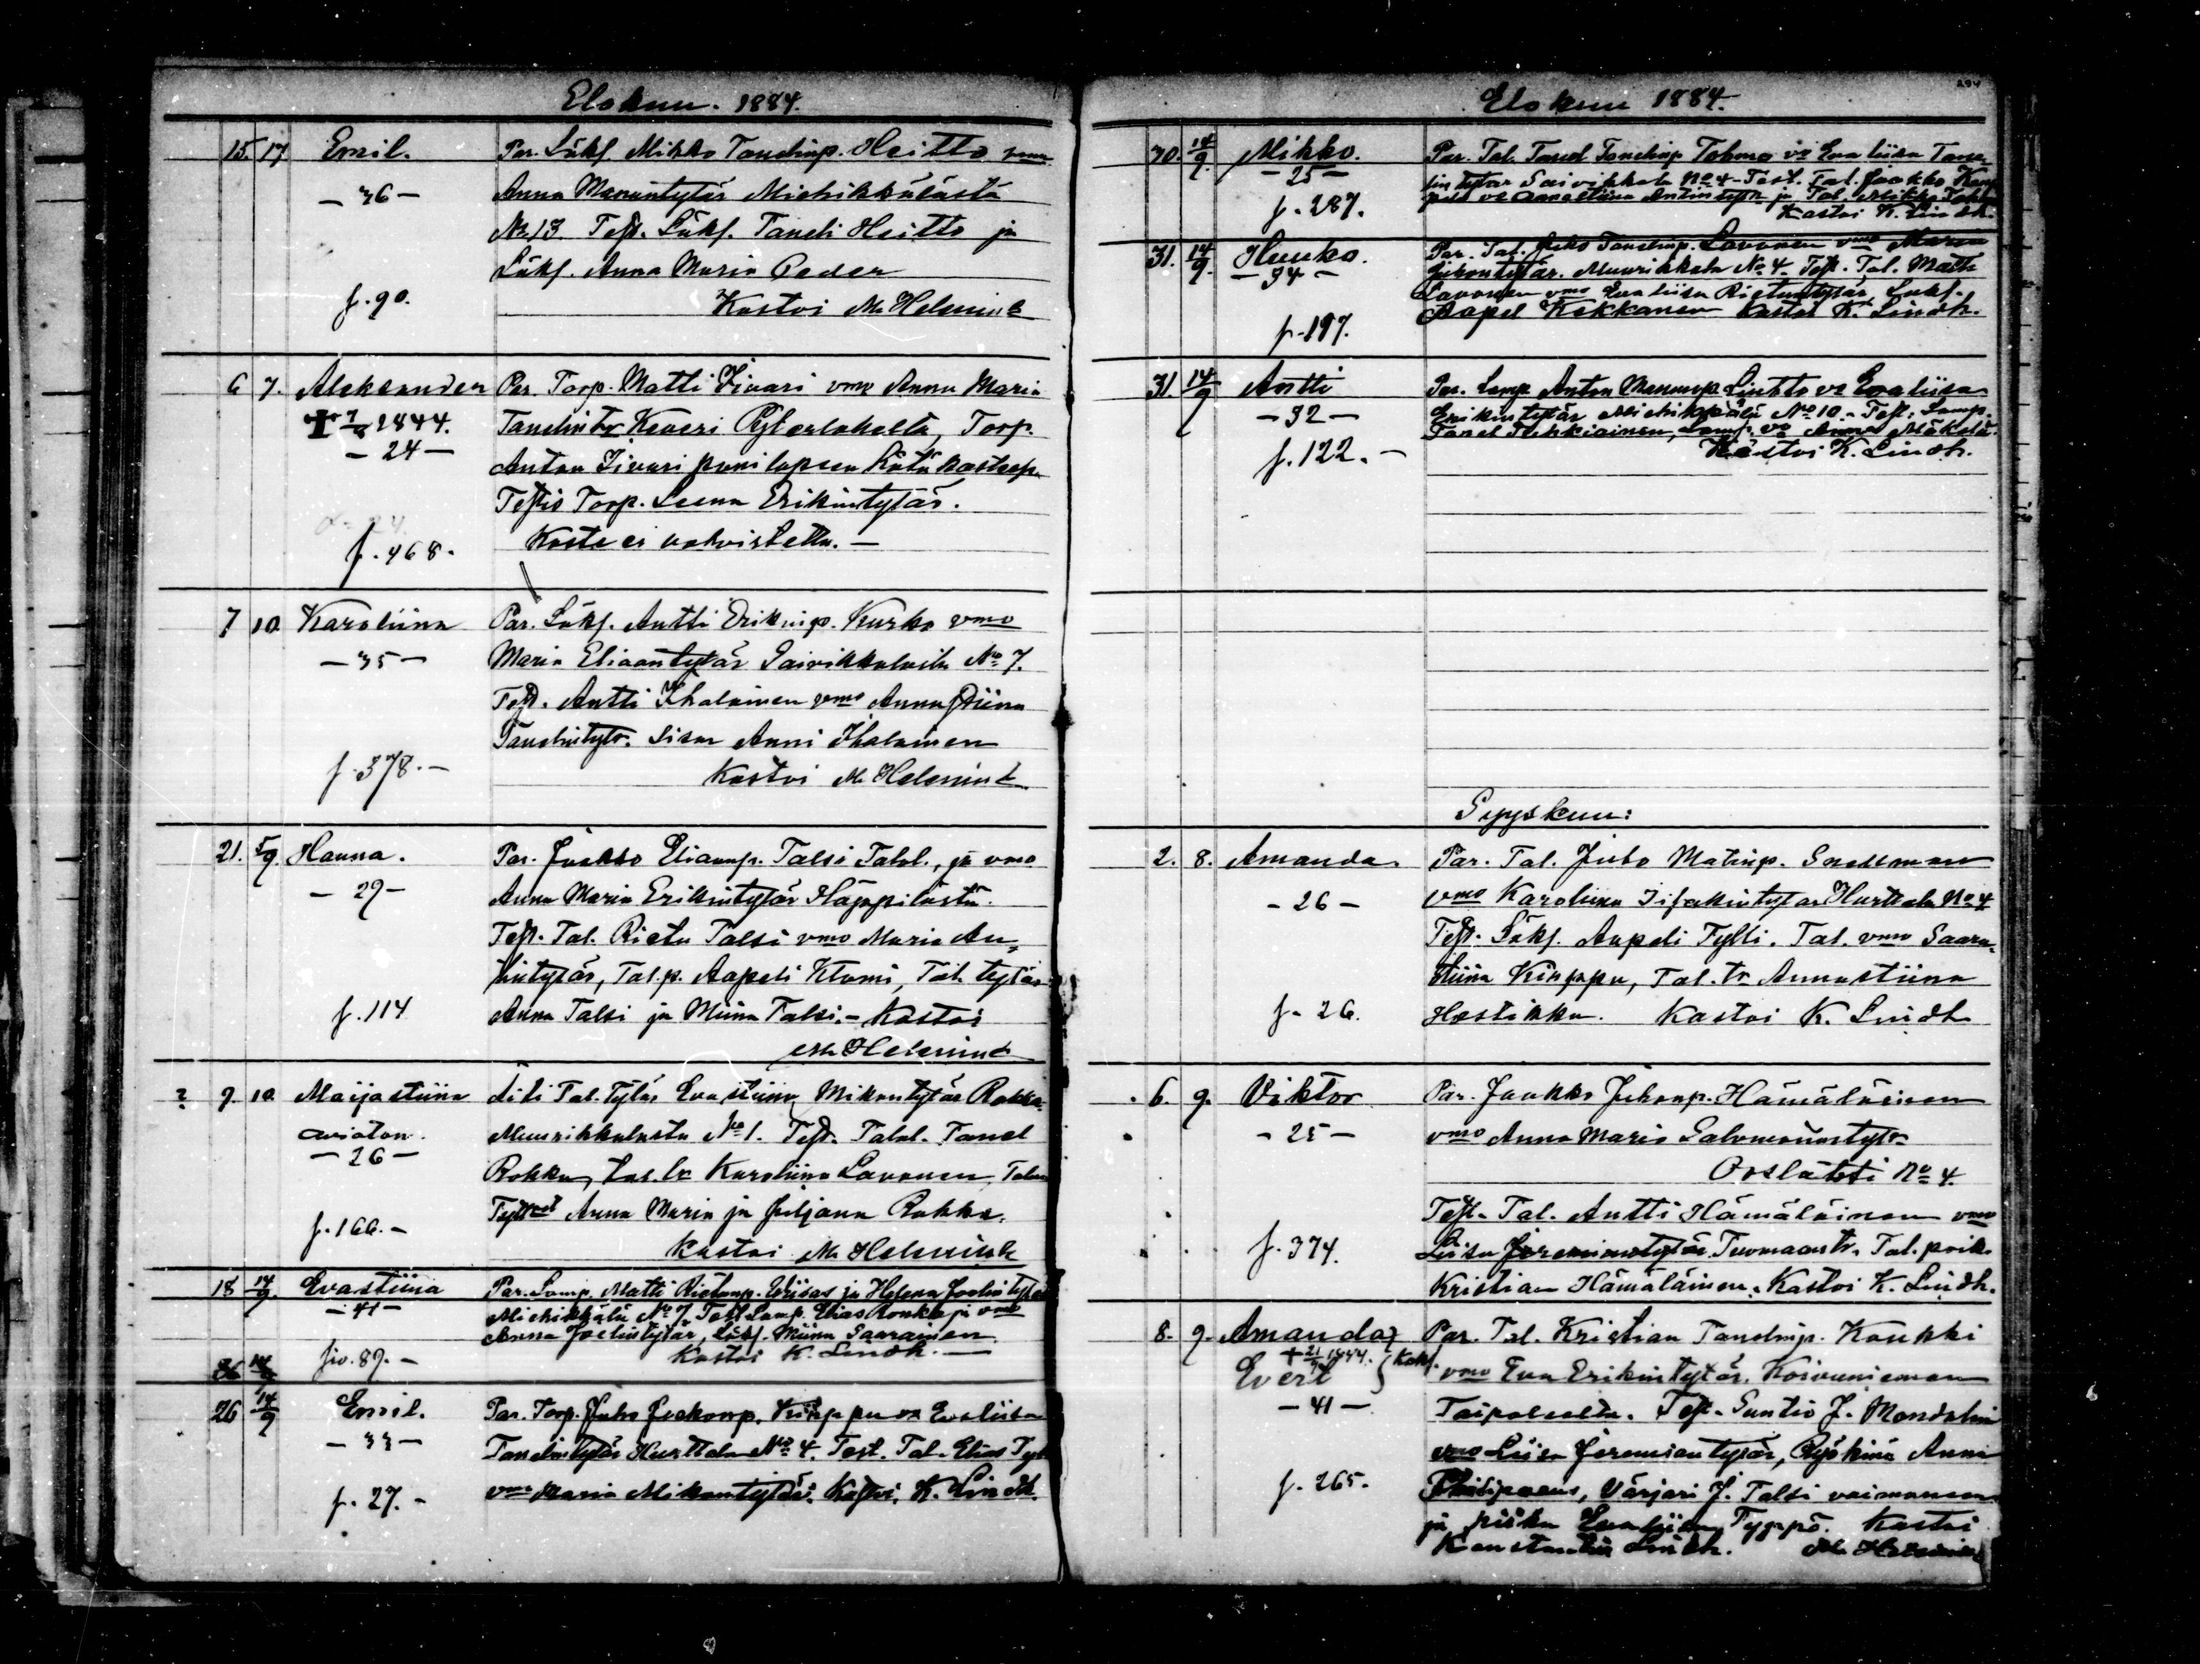 Elokuu. 1884.
15. 17 Emil. Par. Lükf. Mikko Tanelinp. Heitto vmo
- 36 - Anna Manuntytär Miehikkälästä
No 13 Test. Lükf. Taneli Heitto ja
Lükf. Anna Maria Peder
f. 90. Kastoi M. Helenius
6 7. Aleksander Par. Torp. Matti Iivari vmo Anna Maria
1884. Tanelintr Keveri Pyterlahelta, Torp.
- 24 - Anton Iivari puni lapsen hätäkasteep.
Testis Torp. Leena Erikintytär.
f. 468. Kaste ei vahvistettu. -
7 10 Karoliina Par. Lükf. Antti Erikinp. Kurko vmo
- 35 - Maria Eliaantytär Saivikkalasta No 7.
Test. Antti Ihalainen vmo Anna Stiina
Tanelintytr. sisar Anni Ihalainen
f. 378. - Kastoi M. Helenius
21. 5/9. Hanna. Par. Jaakko Eliaanp. Talsi Talol., ja vmo
- 29 - Anna Maria Erikintytär Häppilästä.
Test. Tal. Rietu Talsi vmo Maria An-
tintytär, Tal.p. Aapeli Ktomi, Tal. tytär
f. 114 Anna Talsi ja Miina Talsi. - Kastoi
M. Helenius
? 9. 10. Maijastiina Äiti Tal. Tytär Evastiina Mikontytär Rokka
aviaton. Muurikkalasta No 1. Test. Talol. Tanel
- 26 - Rokka, Tal. tr Karoliina Lavonen, Talon
Tyttret Anna Maria ja Juljana Rokka.
f. 166. - Kastoi M. Helenius
18 14/9. Evastiina Par. Lamp. Matti Rietunp. Wiisas ja Helena Joelintytär
- 41 - Miehikkälä No 7. Test Lamp. Elias Ronka ja vmo
Anna Joelintytär, Lükf. Miina Saarainen.
fiv. 89. - Kastoi K. Lindh. -
26 14/9 Emil. Par. Torp. Juho Jaakonp. Kirppu vo Evaliisa
- 33 - Tanelintytär Hurttala No 4. Test. Tal. Elias Tylli
f. 27. - vmo Maria Mikontytär. Kastoi. K. Lindh.
Elokuu 1884.
30. 14/9. Mikko. Par. Tal. Tanel Tanelinp Tohmo vo Evaliisa Tane-
- 25 - lintytär Saivikkala No 4 - Test. Tal. Jaakko
f. 287. vo Annastiina Antintytr ja Tal. Mikko
Kastoi K. Lindh.
31. 14/9. Heikko. Par. Tal. Juho Tanelinp. Lavonen vmo Maria
- 34 - Muurikkala No 4. Test. Tal. Matti
Lavonen vmo Evaliisa Rietuntytär Lukf.
f. 197. Aapel Kekkonen Kastoi K. Lindh.
31. 14/9 Antti Par. Lamp Anton Manunp. Liuhto vo Evaliisa
- 32 - Erikintytär Miehikkälä No 10. - Test. Lamp.
Tanel Tirkkiainen, Lamp. vo Anna Mäkelä.
f. 122. - Kastoi K. Lindh.
Syyskuu:
2. 8. Amanda. Par. Tal. Juho Matinp. Snellman
- 26 - vmo Karoliina Iisakintytär Hurttala No 4
Test. Lükf. Aapeli Tylli. Tal. vmo Saara-
stiina Kirppu, Tal. tr Annastiina
f. 26. Hostikka. Kastoi K. Lindh
6. 9. Viktor Par. Jaakko Juhonp. Hämäläinen
- 25 - vmo Anna Maria Salomonintytr
Ooslähti No 4.
Test. Tal. Antti Hämäläinen vmo
f. 374. Liisa Jeremiantytär Tuomaantr. Tal. poik.
Kristian Hämäläinen. Kastoi K. Lindh.
8. 9. Amanda Par. Tal. Kristian Tanelinp. Koukki
+ 21/9 1884.
Evert } Kaks. vmo Eva Erikintytär. Koivuniemen
- 41 - Taipaleelta. Test. Suntio J. Mandelin
vmo Liisa Jeremiantytär, Ryökinä Anna
f. 265. Philipaeus, Värjäri J. Talsi vaimonsa
ja piika Evaliisa Tyyppö. Kastoi
Konstantin Lindh. M. Helenius